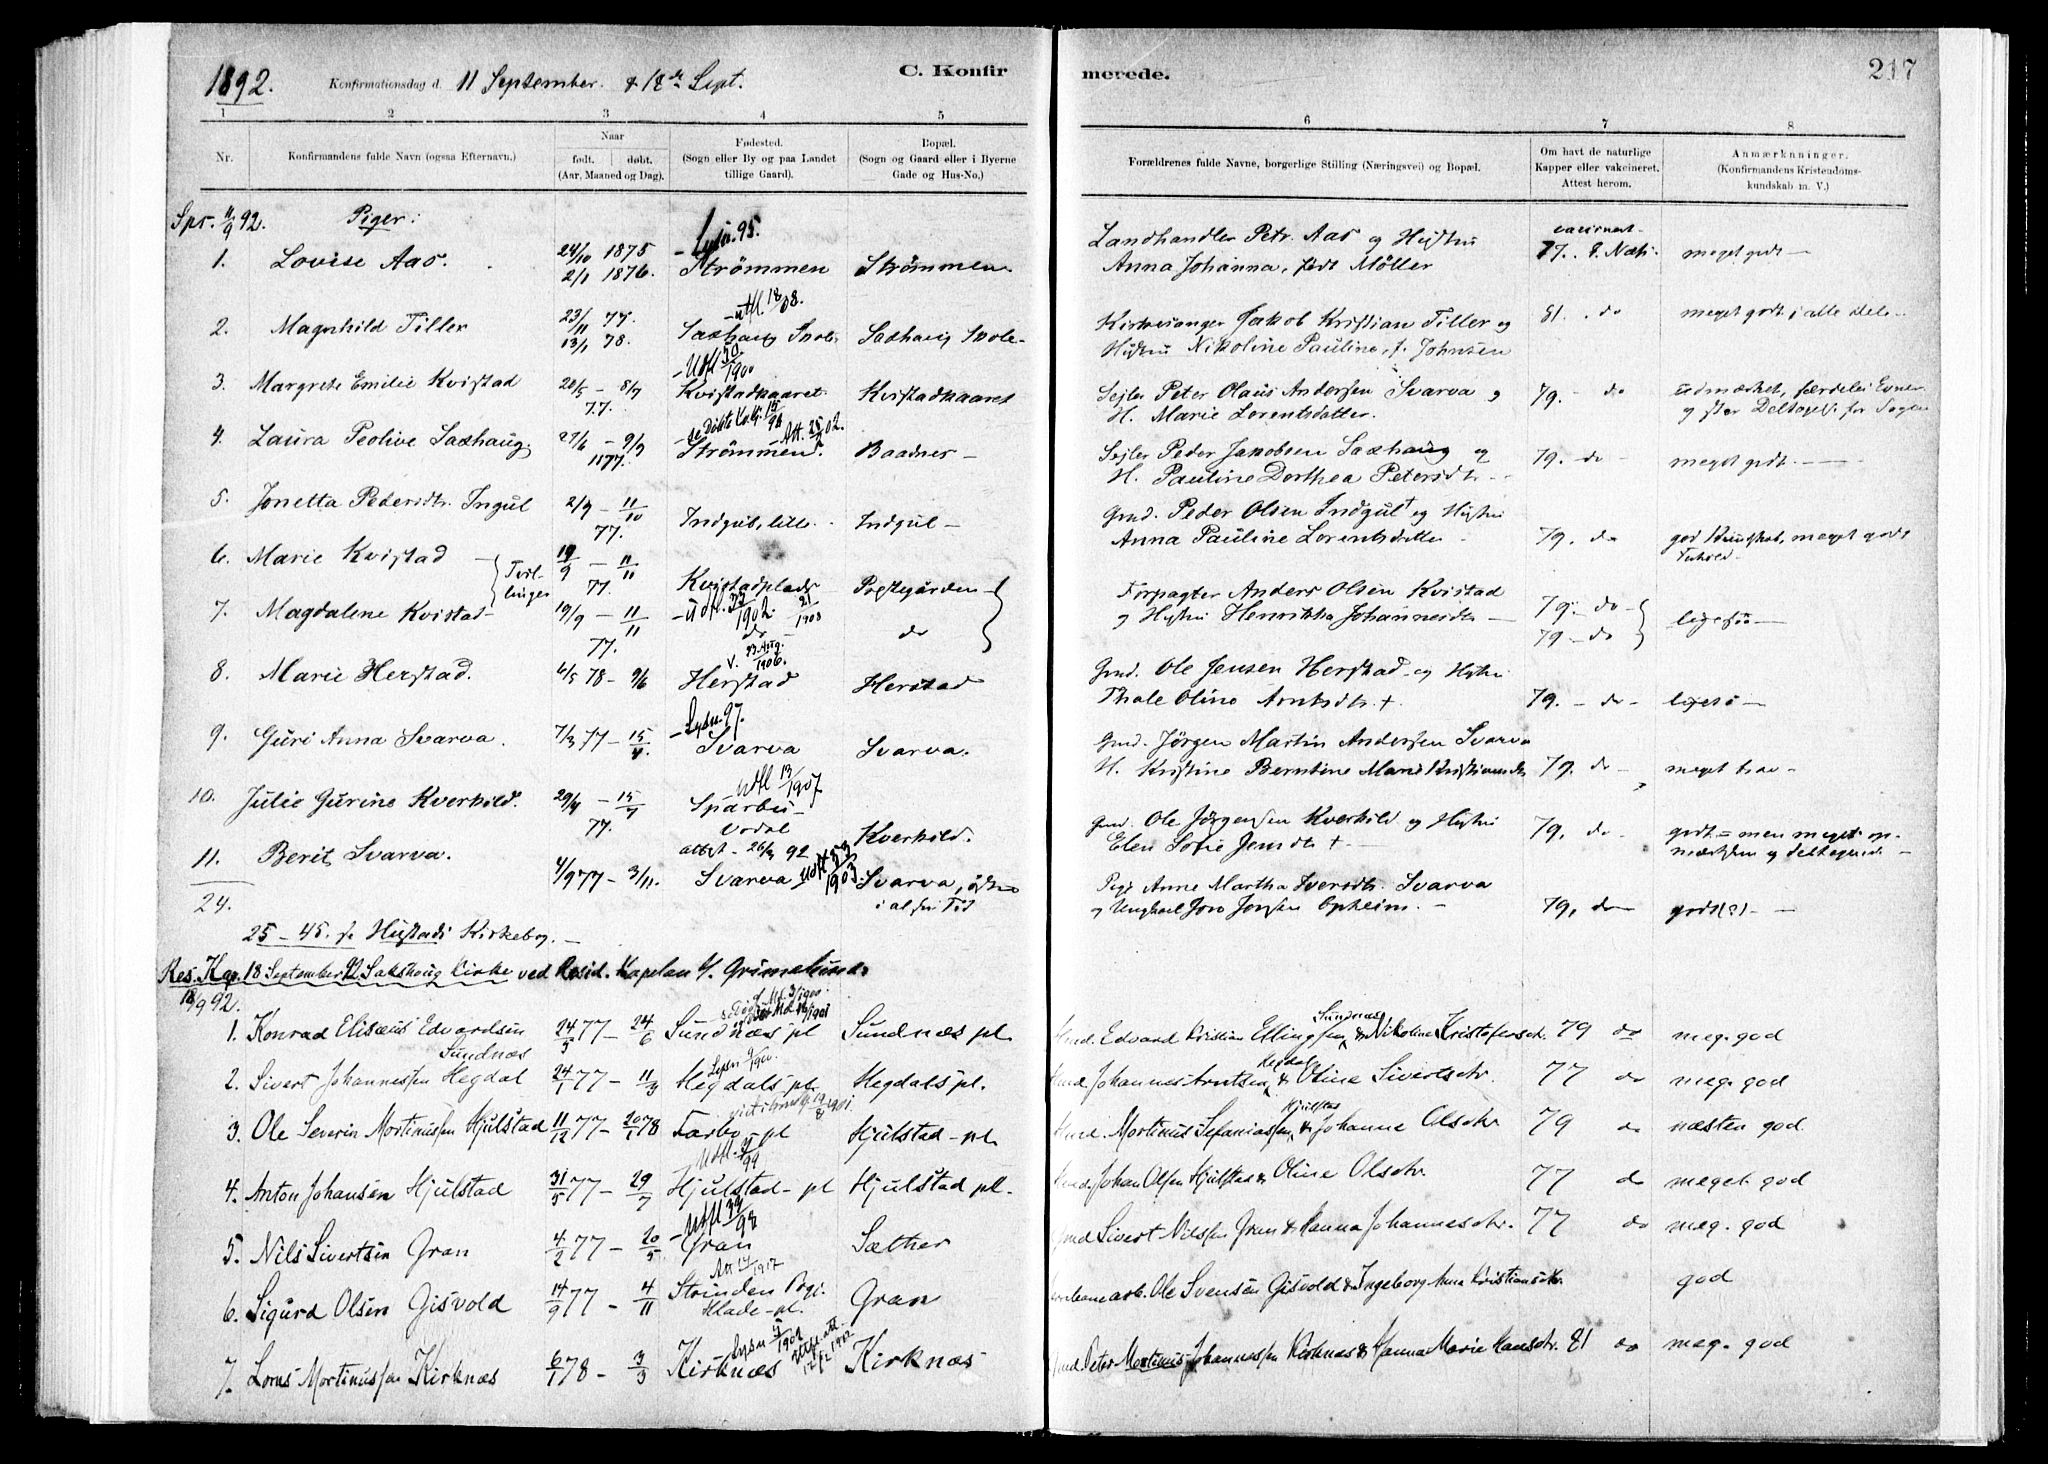 1892. Konfirmationsdag d. 11 September. & 18de Sept. C. Konfir merede. 217
1 2 3 4 5 6 7 8
Nr. Konfirmandens fulde Navn (ogsaa Efternavn.) Naar født. døbt. (Aar, Maaned og Dag). Fødested. (Sogn eller By og paa Landet tillige Gaard). Bopæl. (Sogn og Gaard eller i Byerne Gade og Hus-No.) Forældrenes fulde Navne, borgerlige Stilling (Næringsvei) og Bopæl. Om havt de naturlige Kapper eller vakcineret. Attest herom. Anmærkninger. (Konfirmandens Kristendomskundskab m. V.)
Spr. 11/9 92. Piger:
Lysn. 95.
1. Lovise Aas. 24/10 1875 2/1 1876. Strömmen Strömmen Landhandler Petr. Aas og Hustru Anna Johanna, født Möller 77. meget godt
utfl. 18/ 08.
2. Magnhild Tiller 23/11 77. 13/1 78. Saxhaug Skole Saxhaug Skole Kirkesanger Jakob Kristian Tiller og Hustru Nikoline Pauline, f. Johnsen 81. do meget godt i alle Dele
Utfl 30/1900
3. Margrete Emilie Kvistad 20/5 – 8/7 77. Kvistadkaaret Kvistadkaaret Sejler Peter Olaus Andersen Svarva og H. Marie Lorentsdatter. 79. do
Att. 25/2 02.
4. Laura Peolive Saxhaug. 27/6 – 9/9 1877. Strömmen. Baadner Sejler Peder Jakobsen Saxhaug og H. Pauline Dorthea Petersdtr. 79. do meget godt.
5. Jonetta Pedersdtr. Ingul 2/9 – 11/10 77. Indgul, lille Indgul Gmd. Peder Olsen Indgul † og Hustru Anna Pauline Lorentsdatter 79. do god Kundskab, meget godt Forhold
6. Marie Kvistad Tvillinger 19/9 – 11/11 77. Kvistadplads Prestegården Forpagter Anders Olsen Kvistad og Hustru Henrikka Johannesdtr 79. do ligeså
7. Magdalene Kvistad 19/9 – 11/11 77. do do 79 – do
8. Marie Herstad. 6/5 78 – 9/6 Herstad Herstad Gmd. Ole Jensen Herstad og Hustru Thale Oline Arntsdtr. † 79. – do ligeså
Lysn. 97.
9. Guri Anna Svarva. 7/3 77 – 15/4. Svarva Svarva. Gmd. Jörgen Martin Andersen Svarva H. Kristine Berntine Marie Kristiansdtr 79. do meget
Utfl 13/1907
10. Julie Gurine Kverhild. 29/4 – 15/7 77. Sparbu Kverhild. Gmd. Ole Jørgensen Kverkild og Hustru Elen Sofie Jensdtr † 79, do godt = men meget
attest 26/3 92
11. Berit Svarva. 4/9 77 – 3/11. Svarva Svarva, Pige Anne Martha Iversdtr. Svarva og Ungkarl Jon Opheim. 79, do godt (?)
24.
25 – 45. se Hustads Kirkebog.
Res. Kap. 18 September 92 Sakshoug Kirke ved Resid. Kapelan Grimelund
18/9 92.
1. Konrad Elisæus Edvardsen Sundnæs 24/5 77 – 24/6 Sundnæs pl Sundnæs pl. Hmd. Edvard Kristian Ellingsen Sundnæs & Nikoline Kristofersdtr. 79 do meg. god
Lysn 9/1900.
2. Sivert Johannessen Hegdal 24/1 77 – 11/3 Hegdals pl. Hegdals pl. Hmd. Johannes Arntsen Hegdal & Oline Sivertsdtr. 77 do meg. god
3. Ole Severin Mortinussen Hjulstad 11/12 77 – 20/1 78 Farbo – pl Hjulstad – pl. Hmd. Mortinus Sefaniassen Hjulstad & Johanne Olsdtr 79 do næsten god
4. Anton Johansen Hjulstad 31/5 77 – 29/7 Hjulstad – pl Hjulstad pl. Hmd. Johan Olsen Hjulstad & Oline Olsdtr. 77 do meget god
5. Nils Sivertsen Gran 4/2 77 – 20/5 Gran Sæther Gmd Sivert Nilssen Gran & Hanna Johannesdtr. 77 do meg. god
6. Sigurd Olsen Gisvold 14/9 77 – 4/11 Strinden Hlade – pl. Gran Ole Svensen Gisvold & Ingeborg Anna Kristiansdtr. god
7. Lorns Mortinussen Kirknæs 6/1 78 – 3/3 Kirknæs Kirknæs Gmd. Peter Mortinus Johannessen Kirknæs & Hanna Marie Hansdtr. 81 do meg. god